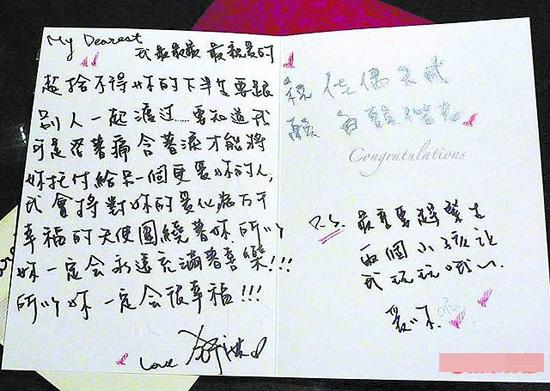 My Dearest
我最最最最親愛的
超捨不得妳的下半生要跟
別人一起渡过......要知道我
可是忍著痛含著淚才能將
妳托付給另一個更愛妳的人,
我會將對妳的愛化為万千
幸福的天使圍繞著妳.所以
妳一定会永遠充滿著喜樂!!!
所以妳一定会很幸福!!!
Love
祝佳偶天成
願
Congratulations
P.S. 最重要趕緊生
兩個小孩让
我玩玩哦~
愛妳